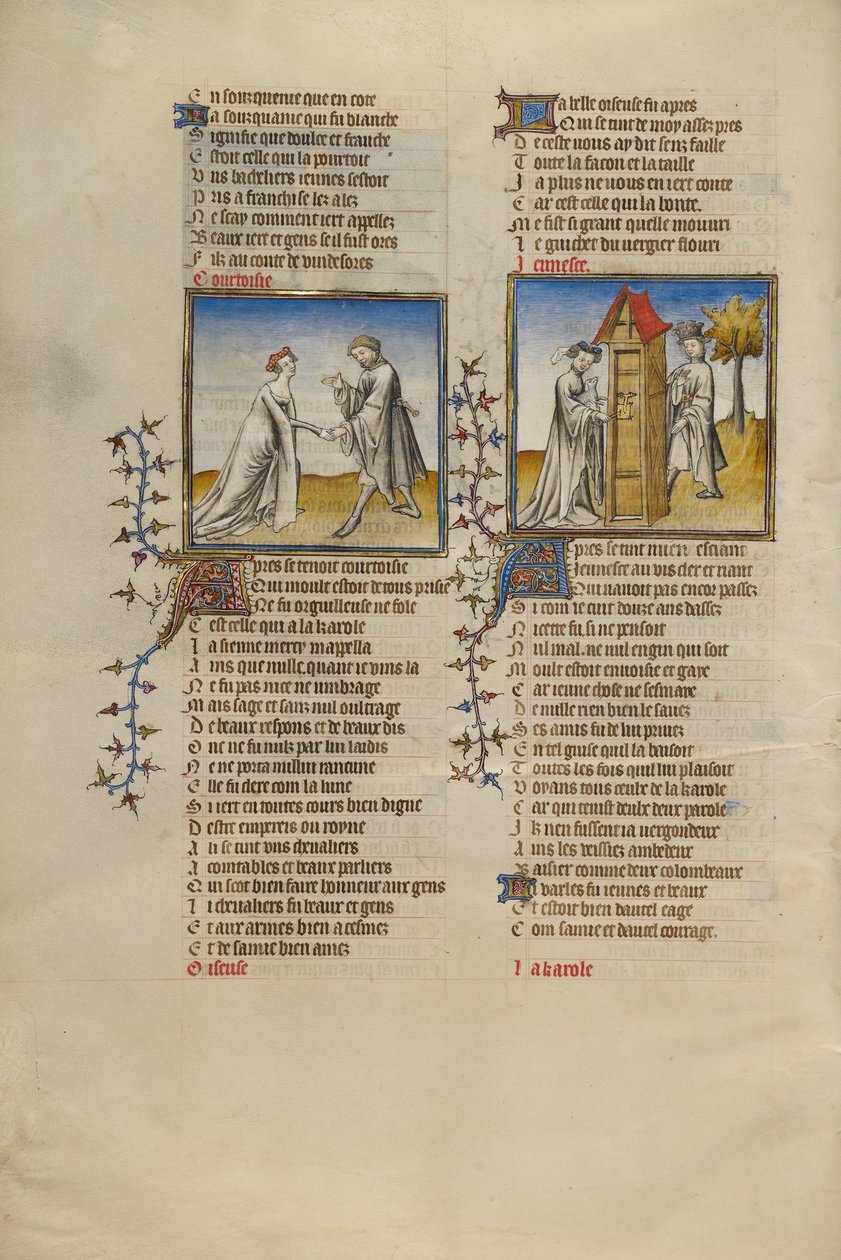 En sourquenie que en cote
La sourquanie qui fu blanche
Signifie que doulce et franche
Estoit celle qui la portoit
Uns bachelers ieunes sestoit
Pris a franchise lez a lez
Ne scay comment iert appellez
Beaux iert et gens se il fust ores
Filz au conte de vindesores
Courtoisie
Apres se tenoit courtoisie
Qui moult estoit de tous prisie
Ne fu orguilleuse ne fole
Cest celle qui a la karole
La sienne mercy mappella
Ains que nulle. quant ie vins la
Ne fu pas nice ne umbrage
Mais sage et sanz nul oultrage
De beaux respons et de beaux dis
Onc ne fu nulz par lui laidis
Ne ne porta nullui rancune
Elle fu clere com la lune
Si iert en toutes cours bien digne
Destre empereis ou royne
A li se tint uns chevaliers
Acointables et beaux parliers
Qui scot bien faire honneur aux gens
Li chevaliers fu beaux et gens
Et aux armes bien acesmez
Et de samie bien amez
Oiseuse
La belle oiseuse fu apres
Qui se tint de moy assez pres
De ceste vous ay dit senz faille
Toute la facon et la taille
Ja plus ne vous en iert conte
Car cest celle qui la bonte.
Me fist si grant quelle mouvri
Le guichet du vergier flouri
Jeunesce.
Apres se tint mien esciant
Jeunesce au vis cler et riant
Qui navoit pas encor passez
Si com ie cuit douze ans dassez
Nicette fu. si ne pensoit
Nul mal. ne nul engin qui soit
Moult estoit envoisie et gaye
Car ieune chose ne sesmaye
De nulle rien bien le savez
Ses amis fu de lui privez
En tel guise quil la baisoit
Toutes les fois quil lui plaisoit
Voyans tous ceulx de la karole
Car qui tenist deulx deux parole
Ilz nen fussent ia vergondeux
Ains les veissiez ambedeux
Baisier comme deux colombeaux
Li varles fu ieunes et beaux
Et estoit bien dautel eage
Com samie et dautel courage.
La karole